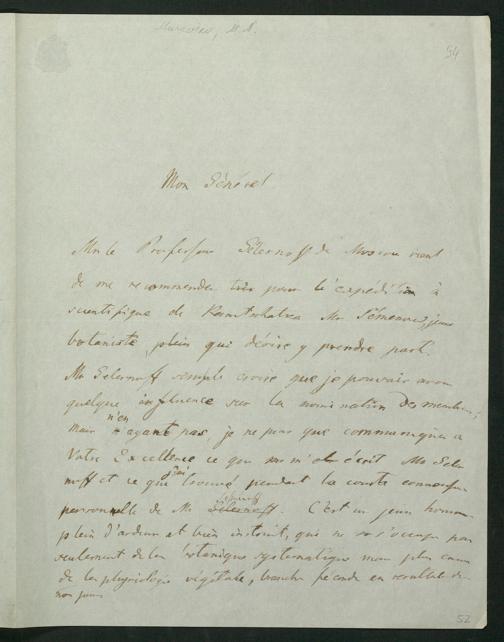 Muraview, M. N.
54
Mon Général
Mr le Professeur de Moscou vient
de me recommander très pour l'expédition à
scientifique de Kamtschatka Mr jeune
botaniste, plein qui désire y prendre part.
Mr semble croire que je pouvais avoir
quelque influence sur la nomination des membres;
mais n'en ayant pas, je ne puis que communiquer a
Votre Excellence ce que m'a écrit Mr
et ce que j'ai trouvé pendant la courte
personnelle de Mr C'est un jeune homme
plein d'ardeur et bien instruit, qui ne s'occupe pas
seulement de la botanique systématique mais plus encore
de la physiologie végétale, branche féconde en resultats de
nos jours
52